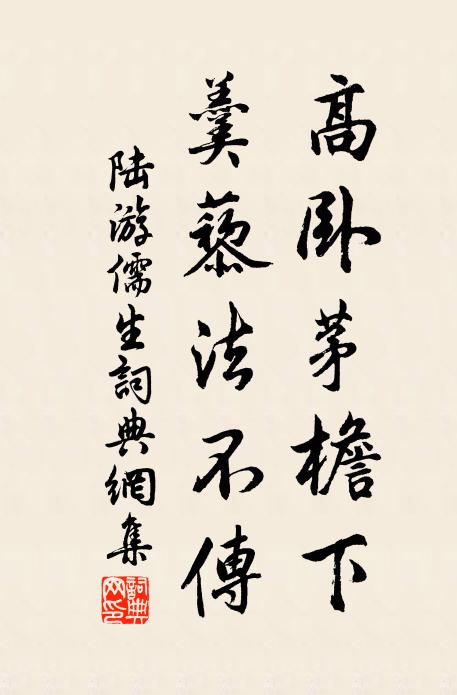 高臥茅檐下
羹藜法不傳
陸游儒生詞典網集
詞典
网印